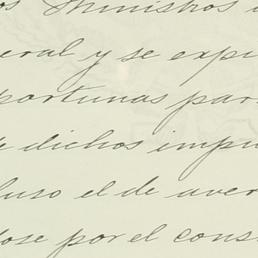 os Ministros
eral y se expi
portunas par
e dichos impu
luso el de aver
dose por el cons